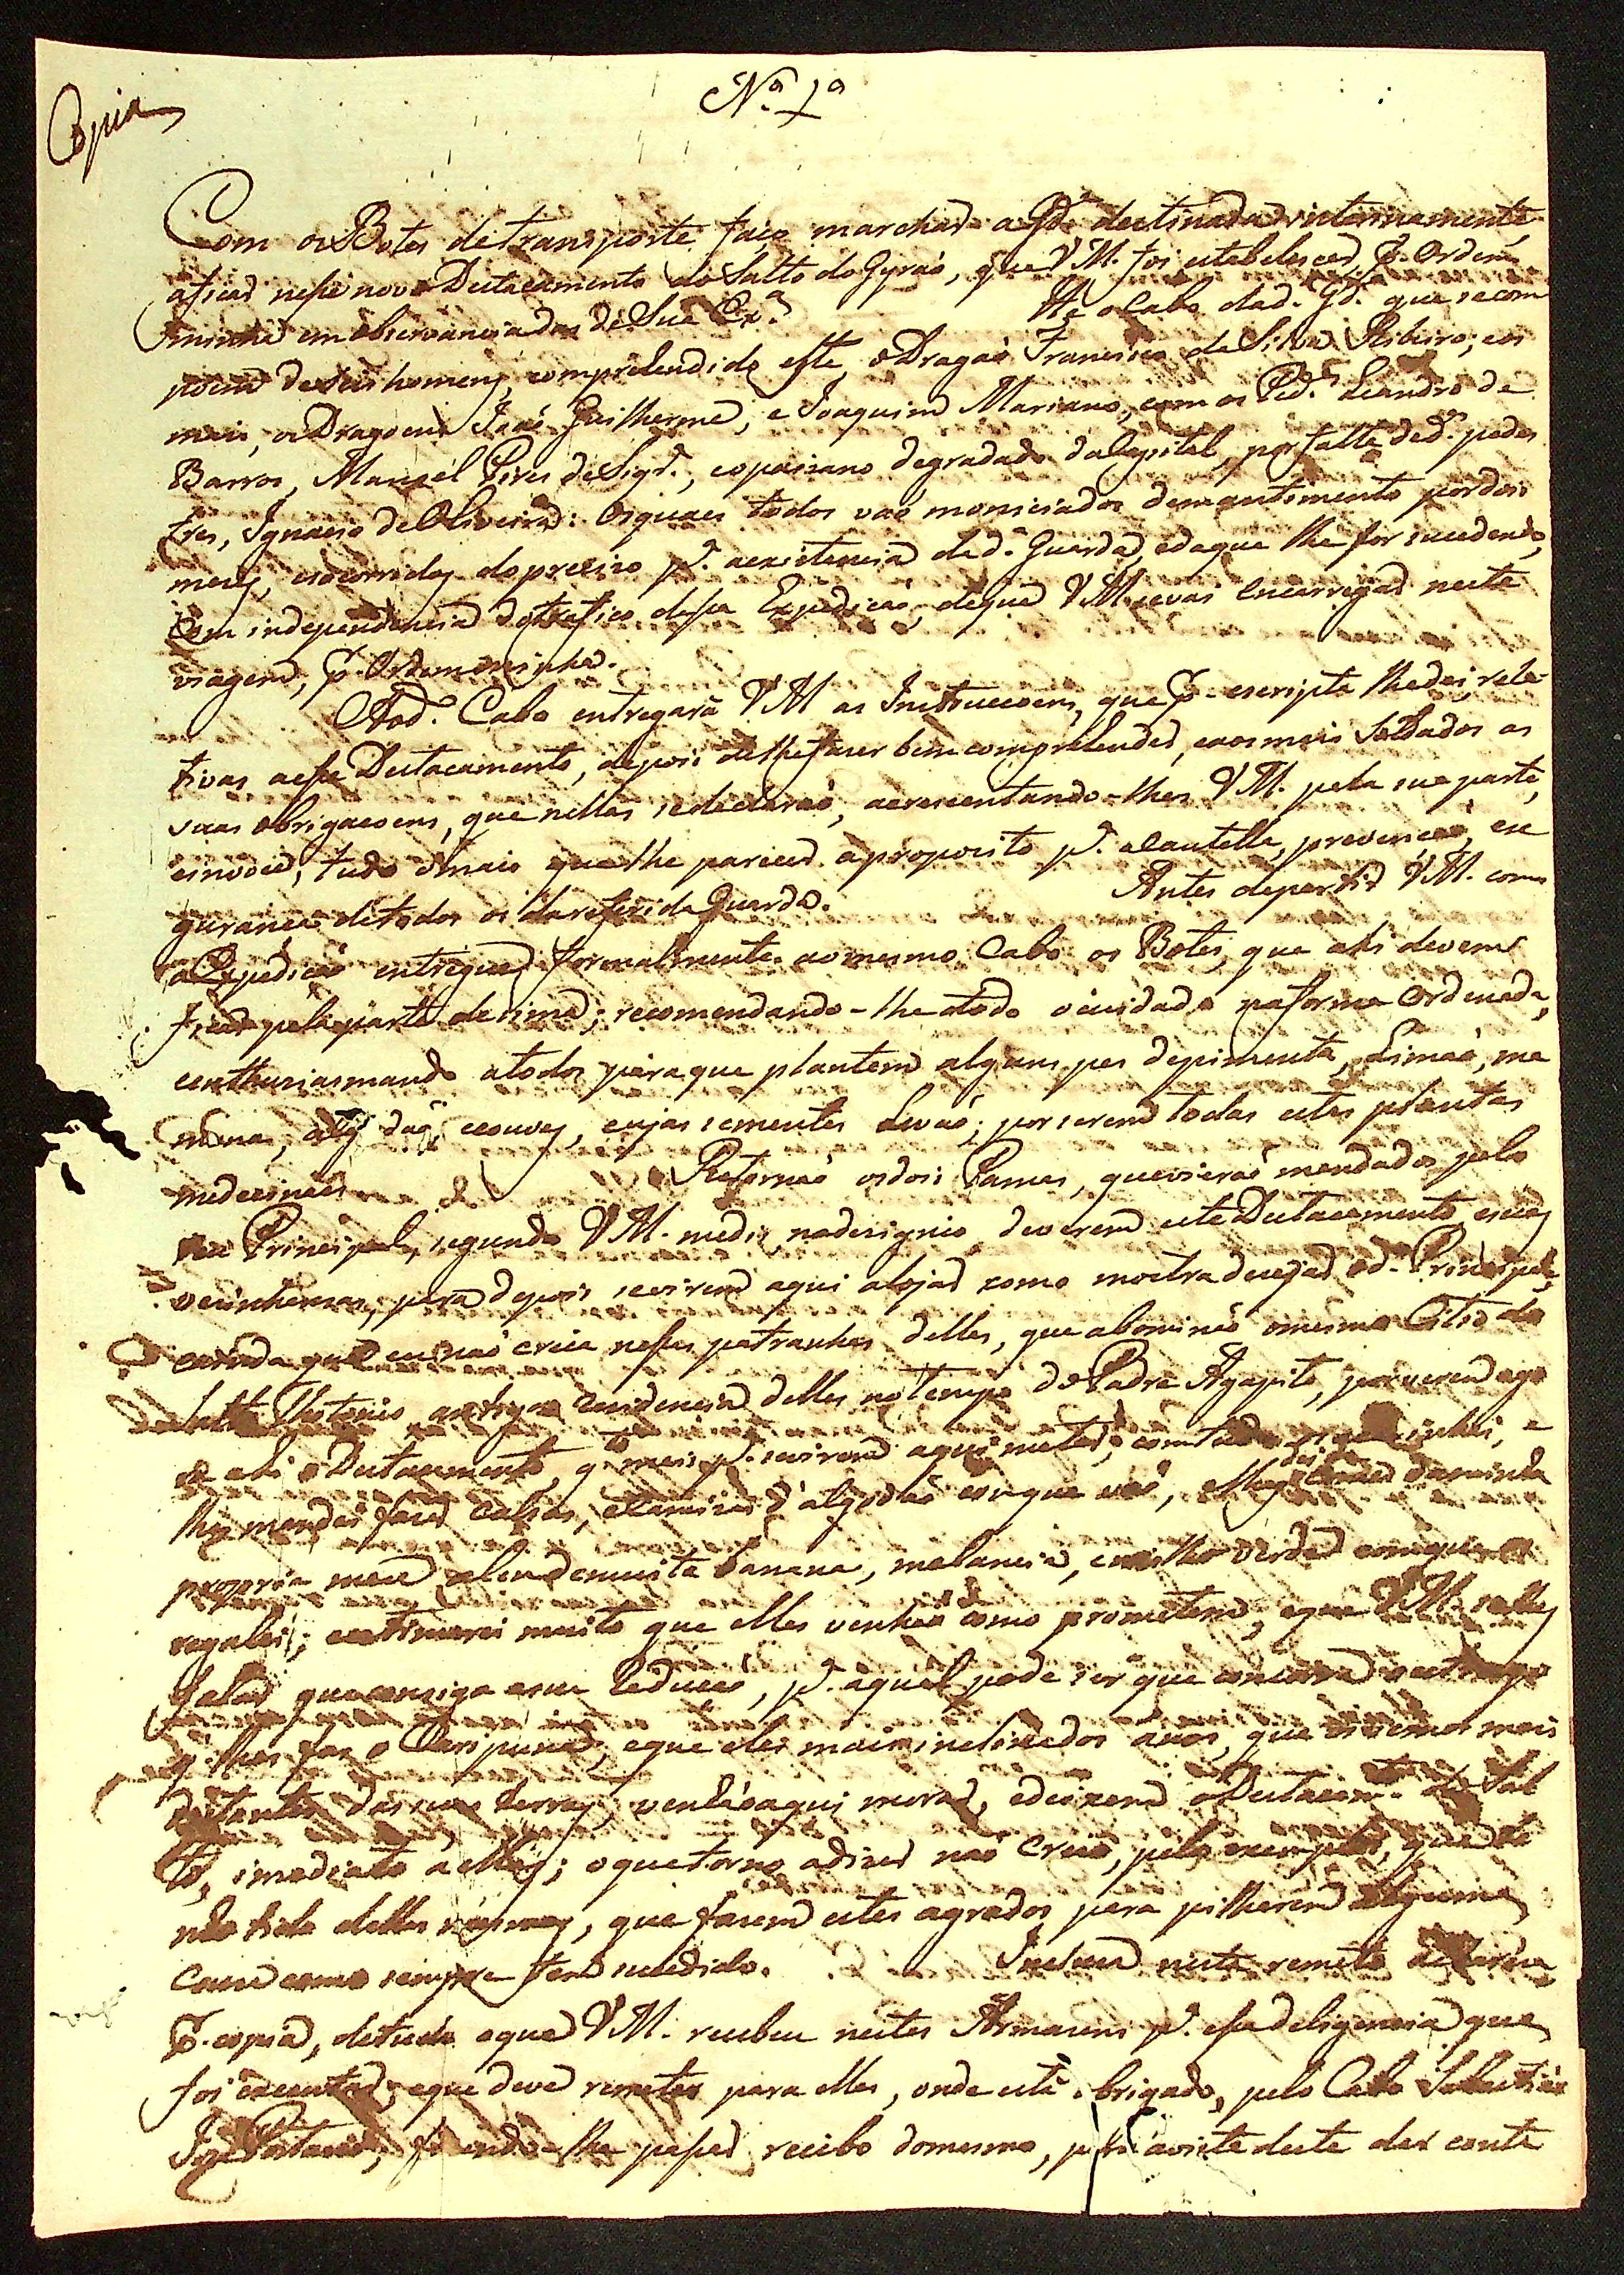 Copia
N.ª 1ª
Com os Botes de transporte faço marchar a G.dª destinada interinamente
a ficar nesse novo Destacamento do Salto do Gyráo, que V M. foi estabelescer p. Ordem
minha em observancia das de Sua Ex.ª He o Cabo da d.ª G.dª que se com
poem de seis homens, comprehendido este, o Dragaõ Francisco da Silva Ribeiro; e os
mais, os Dragoens Joaõ Guilherme, e Joaquim Mariano, com os Ped. Leandro de
Barros, Manoel Pires de Siqr.ª, e o paisano degradado da Capital, por falta de d.º pedes
tres, Ignacio de Oliveira: Os quaes todos vaõ moniciados de mantimento por dois
mezes, e socorridos do precizo p.ª a existencia da d.ª Guarda, e da que lhe for sucedendo,
com independencia do trafico dessa Expediçaõ, de que V M. se vai encarregar nesta
viagem, p. Ordem minha.
Ao d.º Cabo entregará V M as Instrucçoens, que p. escripto lhe dei, rela-
tivas a esse Destacamento, depois de lhe fazer bem comprehender, e aos mais Soldados as
suas obrigaçoens, que nellas se declaraõ, acrescentando-lhes V M. pela sua parte,
e in voce, tudo o mais que lhe parecer a proposito p.ª a cautella, prevençaõ, e se
gurança de todos os da referida Guarda. Antes de partir V M. com
a Expediçaõ entregue formalmente ao mesmo Cabo os Botes, que ahi devem
ficar pela parte de sima; recomendando-lhe todo o cuidado na forma Ordenada,
e enthusiasmando a todos para que plantem alguns pes de pimenta, Limaõ, ma
mona, algodaõ, e couves, cujas sementes levaõ; por serem todas estas plantas
medecinaes. Retornaõ os dois Pamas, que vieraõ mandados pelo
seu Principal, segundo V M. me diz no designio de verem este Destacamento, e suas
vesinhansas, para depois se virem aqui alojar como mostra desejar o d.º Principal,
e ainda que eu naõ creia nessas patranhas delles, que abominaõ o mesmo Citio do
Salto Theotonio antiga rezidencia delles no tempo do Padre Agapito, por verem ago
ra ahi o Destacamento, q.to mais p.ª se virem aqui meter; com tudo os
lhes mandei fazer calsas, e camizas d'algodaõ com que vaõ, e lhes dei comer da minha
propria meza alem de muita banana, melancia, e milho verde com que os
regalei; e estimarei muito que elles venhaõ como prometem, e que V M.
que consiga a sua Reducçaõ, p.ª a qual pode ser que concorra o estrago
q' lhes faz o Caripuna, e que eles mais inclinados a nós, que vivemos mais
distantes das suas terras, venhaõ aqui morar, e deixem o Destacam.to do Sal
to, imediato a elles; o que torno a dizer naõ creio, pelo exemplo, que te
nho tido delles mesmos, que fazem estes agrados para pilharem alguma
couza como sempre tem sucedido. Incluza nesta remeto a
p. copia, de tudo o que V M. recebeu nestes Armazens p.ª essa deligencia que
foi executar; e que deve remeter para elles, onde está obrigado, pelo Cabo Sebastiaõ
Joze, fazendo-lhe passar recibo do mesmo, p.ª á vista deste dar conta